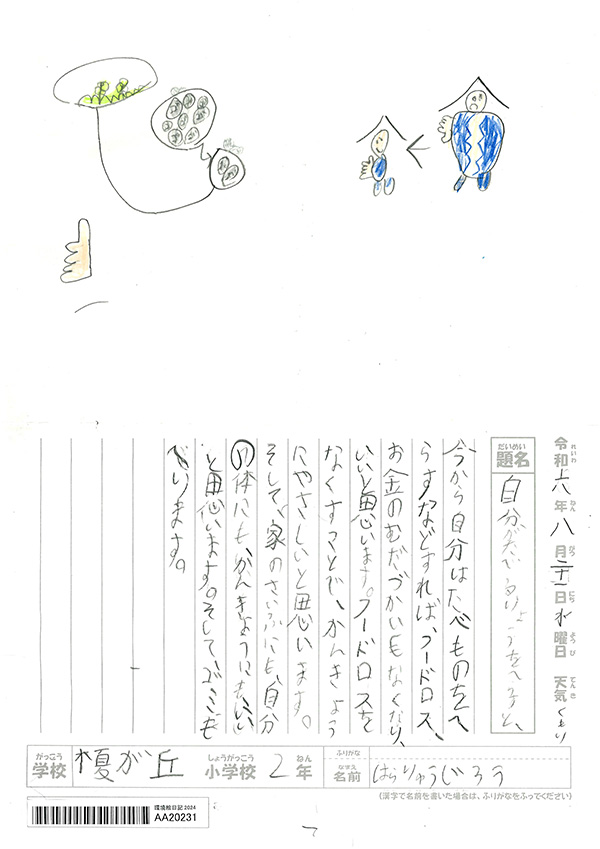 令和六年八月二十一日水曜日 天気くもり
れいわ ねん がつ にち ようび てんき
だいめい
題名
自分がたべるりょうをへらすと、
今から自分はたべものをへ
らすなどすれば、フードロス、
お金のむだづかいもなくなり、
いいと思います。フードロスを
なくすことで、かんきょう
にやさしいと思います。
そして、家のさいふにも、自分
の体にも、かんきょうにも、いい
と思います。そして、ごみも
へります。
がっこう
学校
榎が丘
しょうがっこう
小学校
2
ねん
年
ふりがな
なまえ
名前
はらりゅうじろう
(漢字で名前を書いた場合は、ふりがなをふってください)
環境絵日記2024
AA20231